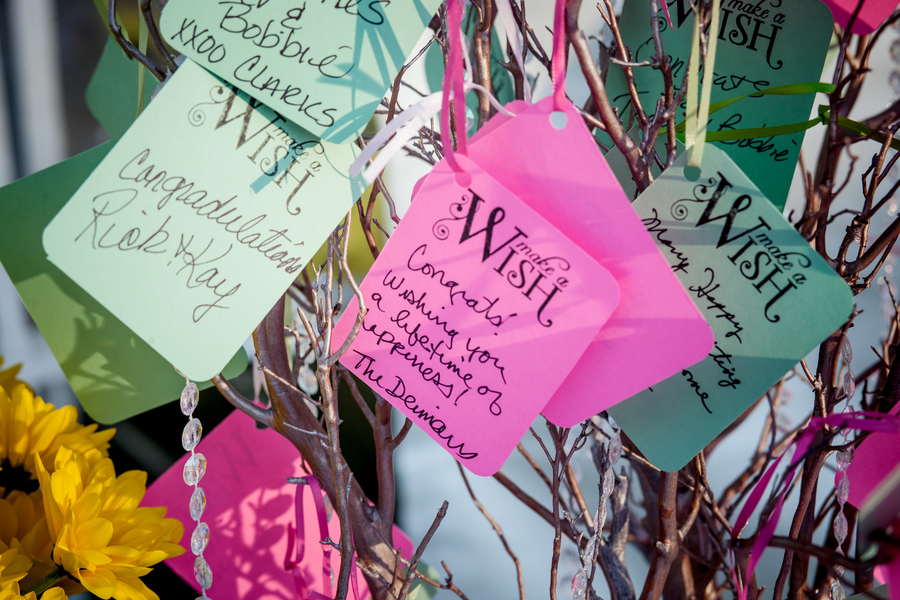 & Bobbie
xxoo CLARKS
make a
WISH
Congradulations
Rick & Kay
make a
WISH
Congrats!
Wishing you
a lifetime of
happiness!
The Deimans
make a
WISH
Many Happy
make a
WISH
Bobbie